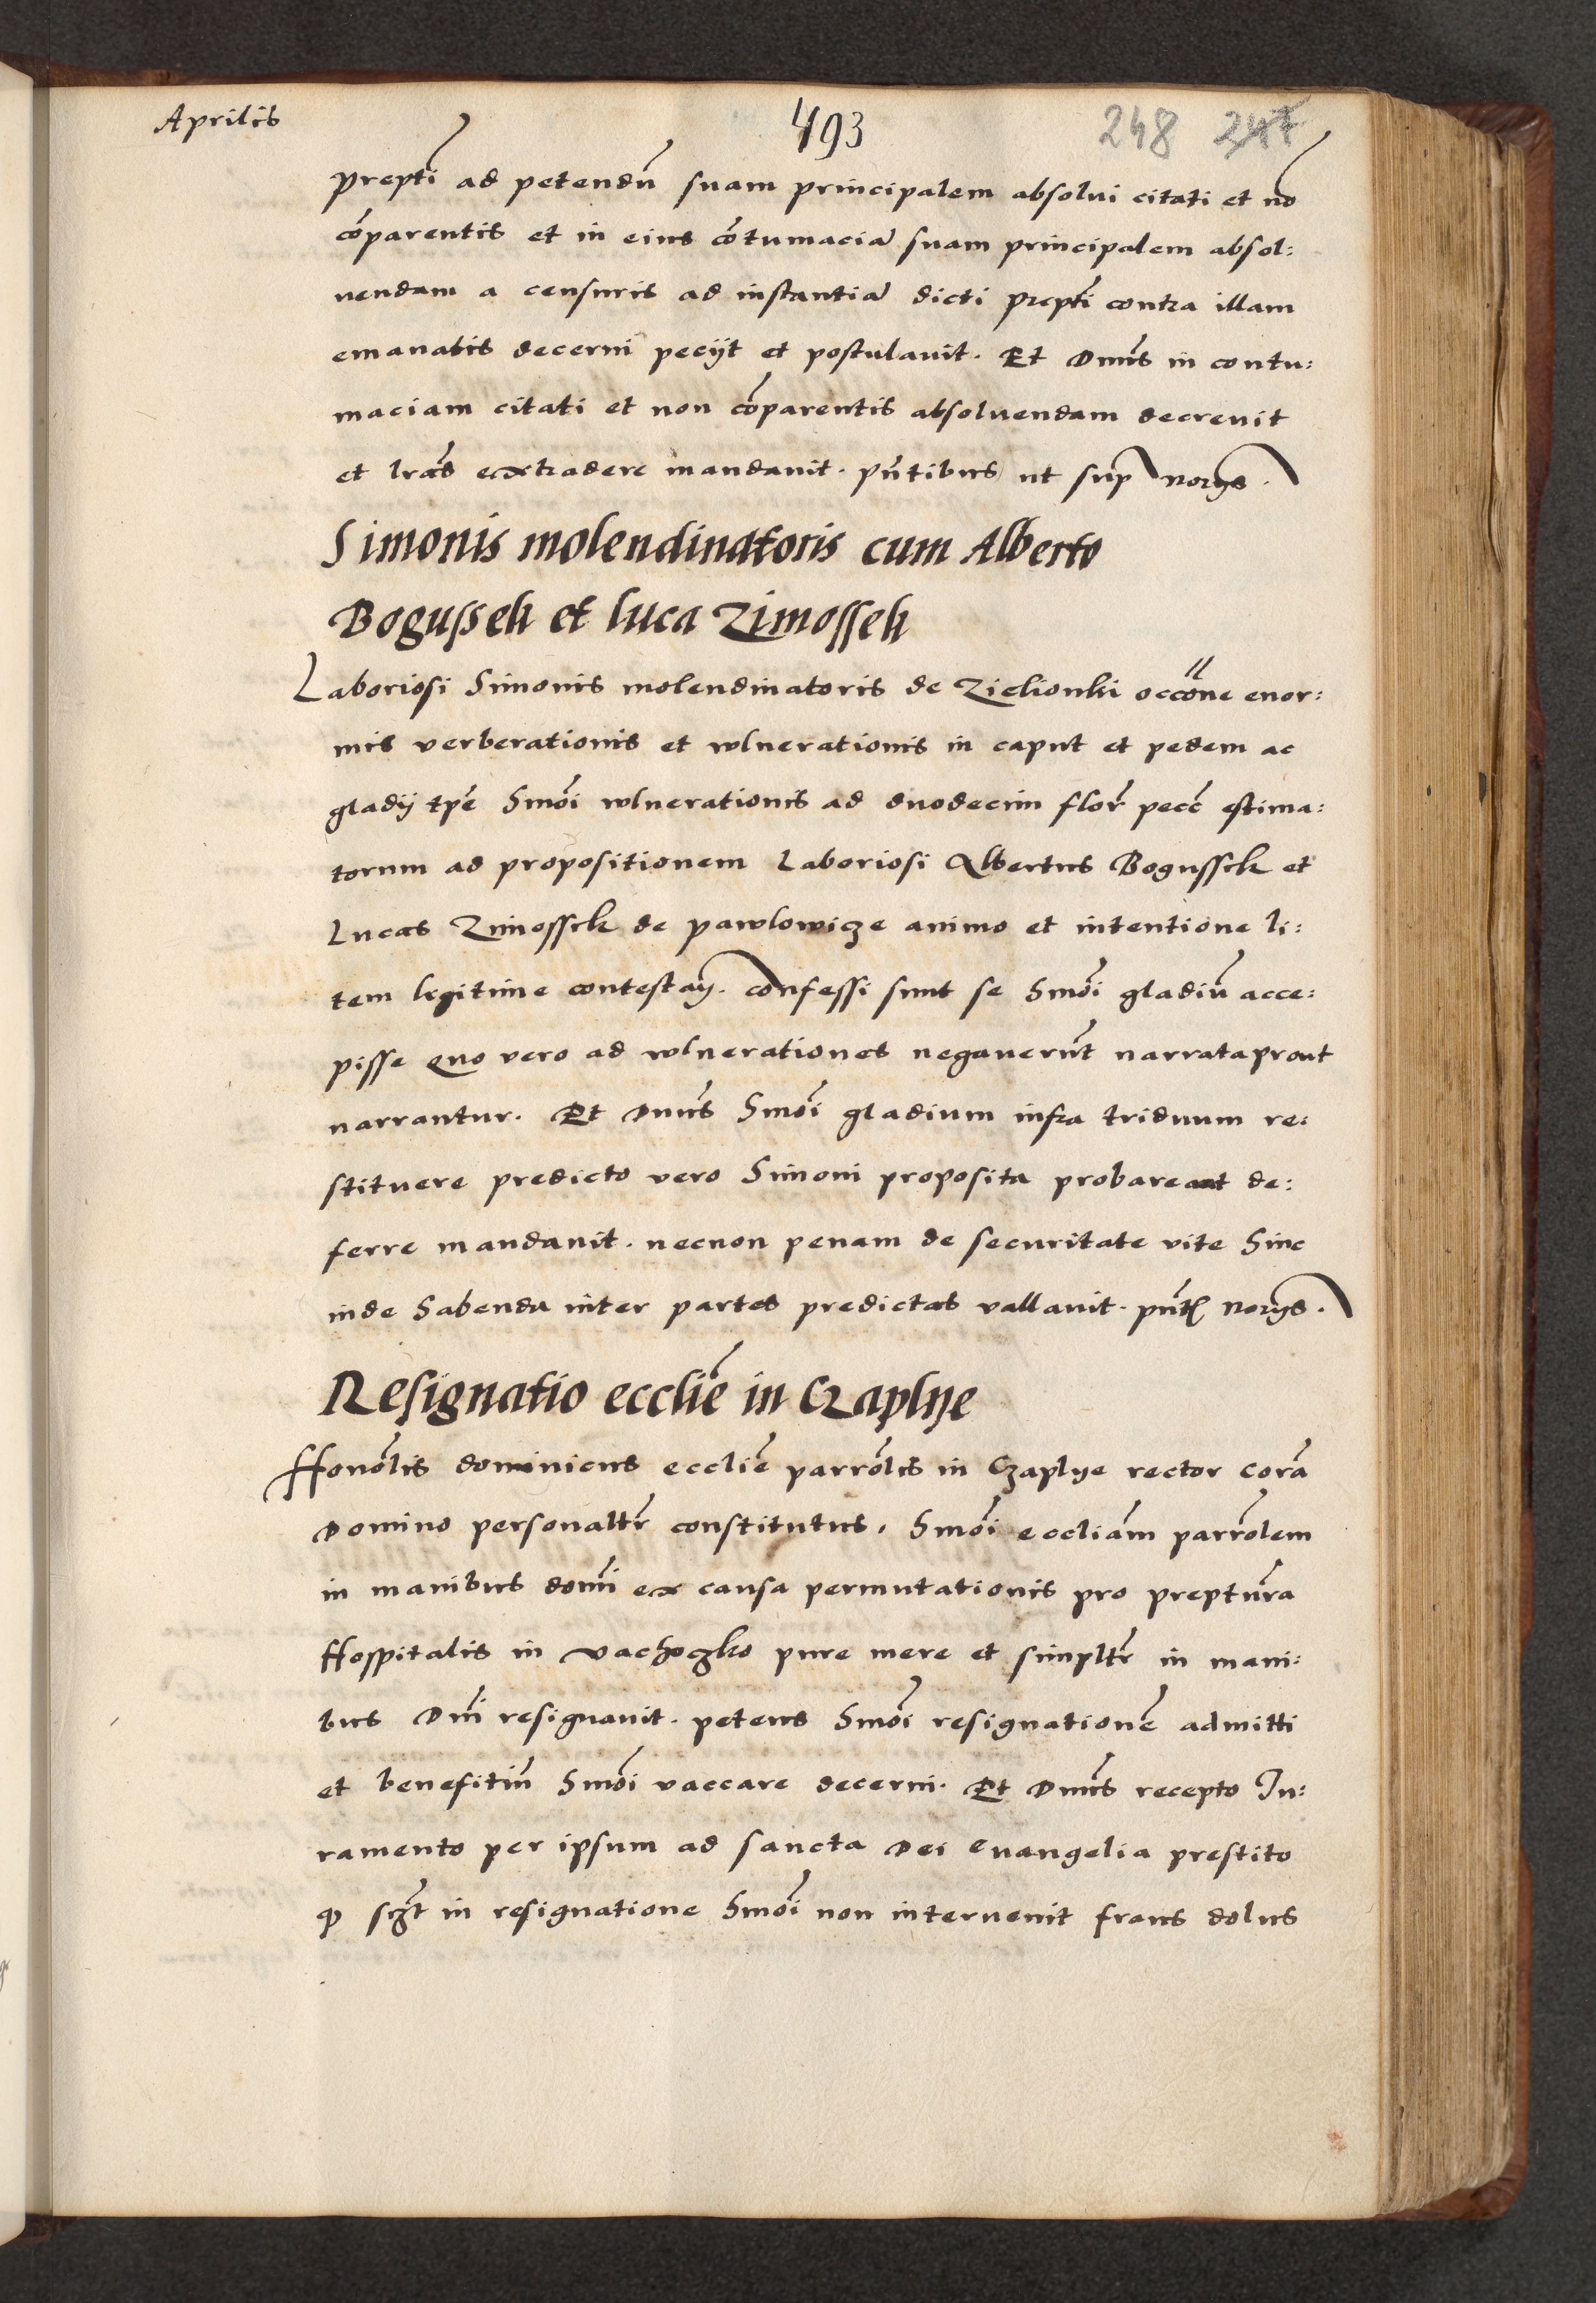 Aprilis
493
248 247
prepti ad petendū suam principalem absolui citati et nō
cōparentis et in eius cōtumaciā suam principalem absol:
uendam a censuris ad instantiā dicti prepti contra illam
emanatis decerni pecijt et postulauit. Et Dnus in contu:
maciam citati et non cōparentis absoluendam decreuit
et lras extradere mandauit. pntibus ut sup norys.
Simonis molendinatoris cum Alberto
Bogussek et luca Zimossek
Laboriosi Simonis molendinatoris de Zielionki occōne enor:
mis verberationis et wlnerationis in caput et pedem ac
gladij tpe hmōi wlnerationis ad duodecim flor pecc estima:
torum ad propositionem Laboriosi Albertus Bogussek et
Lucas Zimossek de pawlowicze animo et intentione li:
tem legitime contestan. confessi sunt se hmōi gladiū acce:
pisse quo vero ad wlnerationes negauerūt narrata prout
narrantur. Et Dnus hmōi gladium infra triduum re:
stituere predicto vero Simoni proposita probare aut de:
ferre mandauit. necnon penam de securitate vite hinc
inde habenda inter partes predictas vallauit. pnt norys.
Resignatio ecclie in Czaplye
Honōlis dominicus ecclie parrōlis in Czaplye rector corā
Domino personaltr constitutus, hmōi ecclīam parrōlem
in manibus domi ex causa permutationis pro prepturā
Hospitalis in vachoczko pure mere et simpltr in mani:
bus Dni resignauit. petens hmōi resignationē admitti
et benefitiū hmōi vaccare decerni. Et Dnus recepto Iu:
ramento per ipsum ad sancta Dei euangelia prestito
q sczt in resignatione hmōi non interuenit fraus dolus